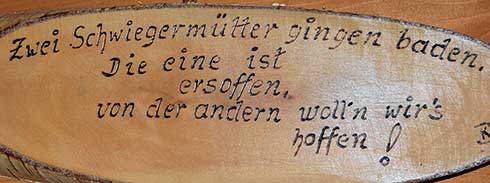 Zwei Schwiegermütter gingen baden.
Die eine ist
ersoffen,
von der andern woll'n wir's
hoffen!